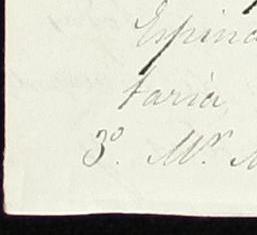 Espino
taria
3º. Mr. M